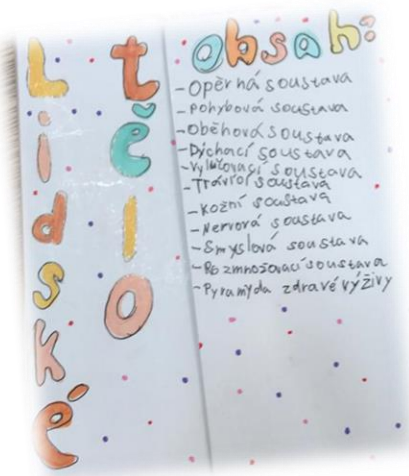 Lidské
tělo
Obsah:
-Opěrná soustava
-Pohybová soustava
-Oběhová soustava
-Dýchací soustava
-Vylučovací soustava
-Trávící soustava
-Kožní soustava
-Nervová soustava
-Smyslová soustava
-Rozmnožovací soustava
-Pyramyda zdravé výživy